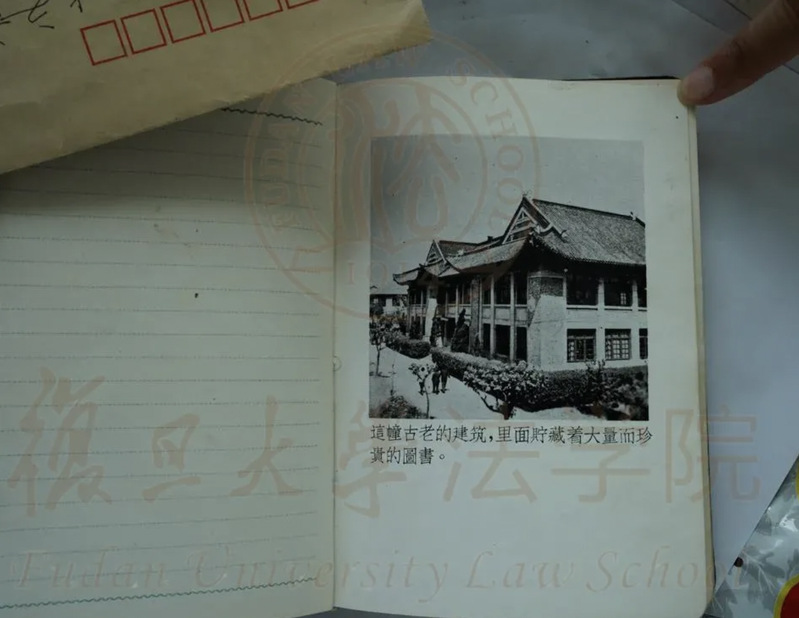 這幢古老的建筑，里面貯藏着大量而珍
貴的圖書。
復旦大學法学院
Fudan University Law School